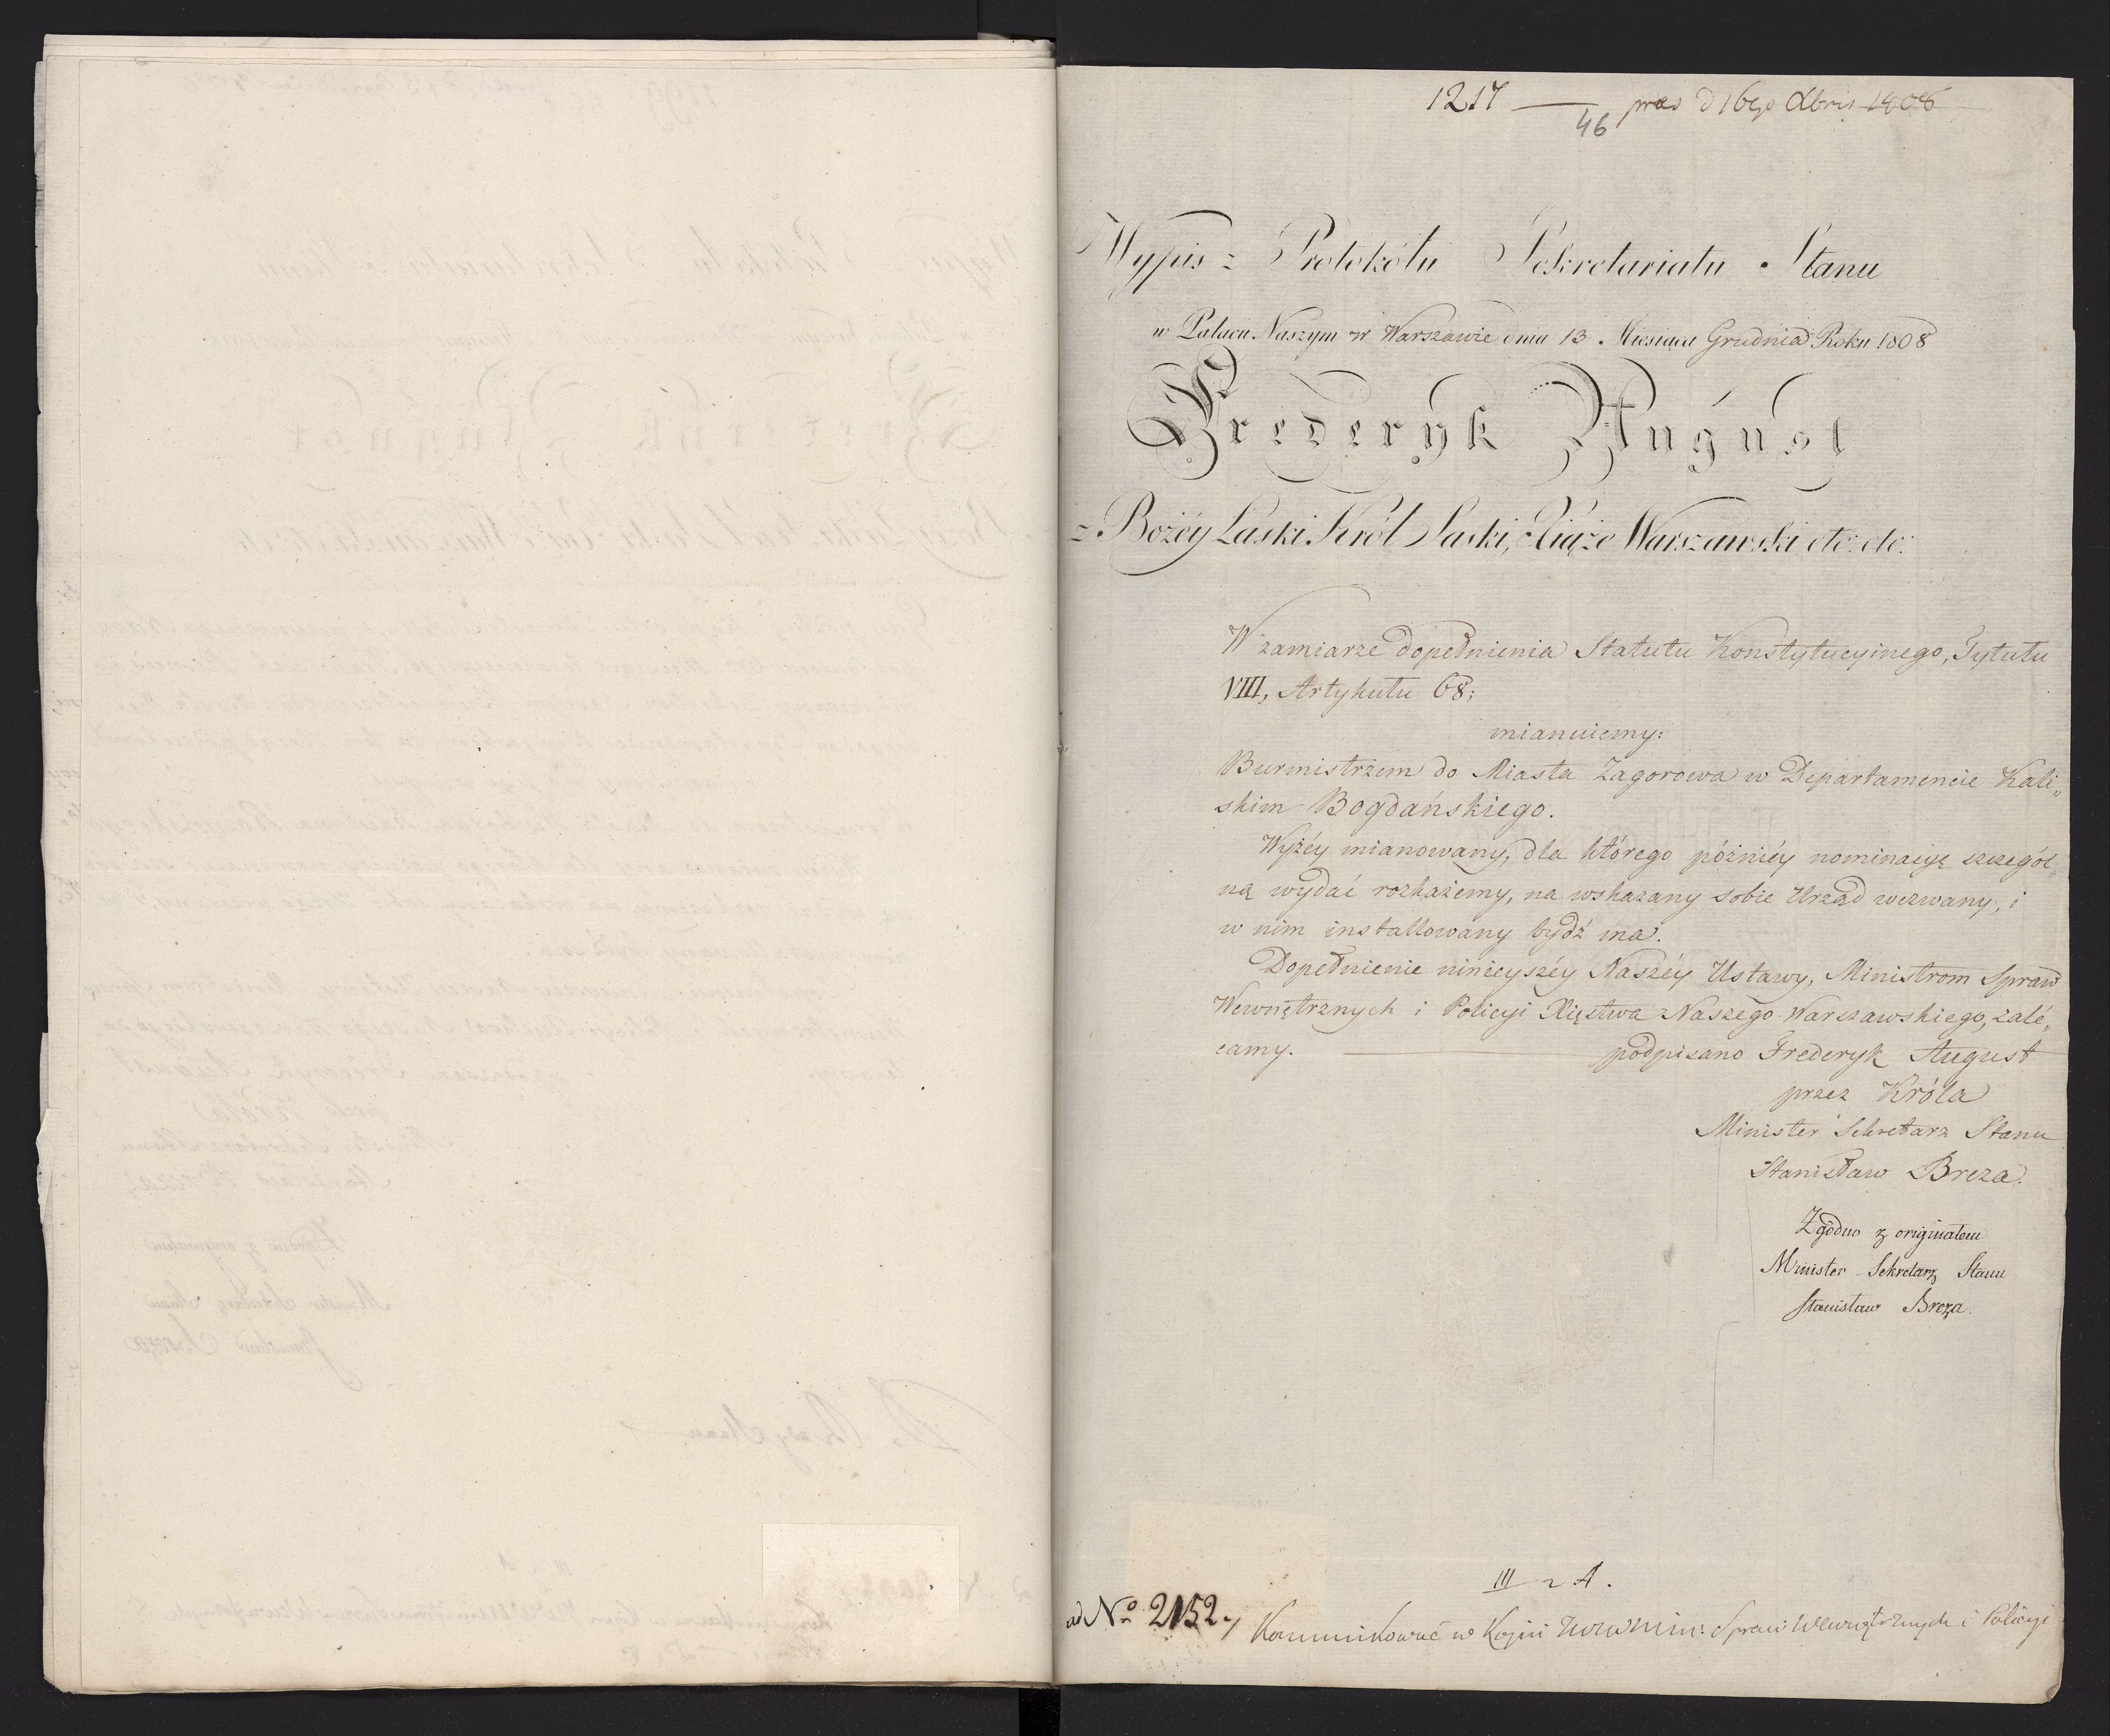 1217 — praes d 16go Xbris 1808
46
Wypis z Protokółu Sekretariatu Stanu
w Pałacu Naszym w Warszawie dnia 13 Miesiąca Grudnia Roku 1808
Frederyk August
z Bożéy Łaski Król Saski, Xiąże Warszawski etc: etc:
W zamiarze dopełnienia Statutu Konstytucyinego, Tytułu
VIII, Artykułu 68;
mianuiemy:
Burmistrzem do Miasta Zagorowa w Departamencie Kali„
skim Bogdańskiego.
Wyżéy mianowany, dla którego późniéy nominacyą szczegól„
ną wydać rozkażemy, na wskazany sobie Urząd wezwany, i
w nim installowany bydź ma.
Dopełnienie ninieyszéy Naszéy Ustawy, Ministrom Spraw
Wewnętrznych i Policyi Xięstwa Naszego Warszawskiego, zalé„
camy. — podpisano Frederyk August
przez Króla
Minister Sekretarz Stanu
Stanisław Breza.
Zgodno z originałem
Minister Sekretarz Stanu
Stanisław Breza.
III 2 A.
ad No 2152.
Kommunikować w Kopii Spraw Wewnętrznych i Policyi